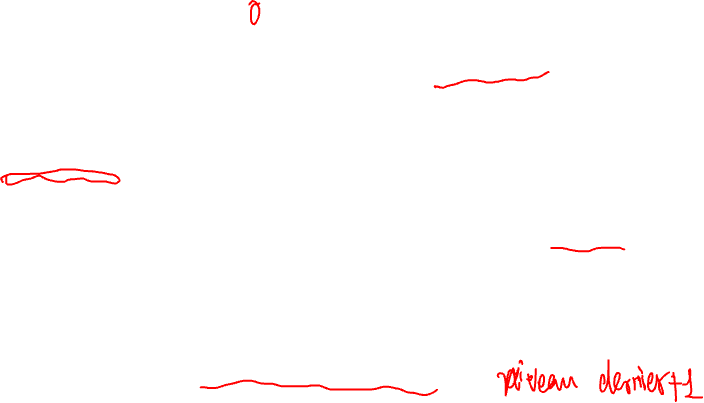 0
niveau dernier+1